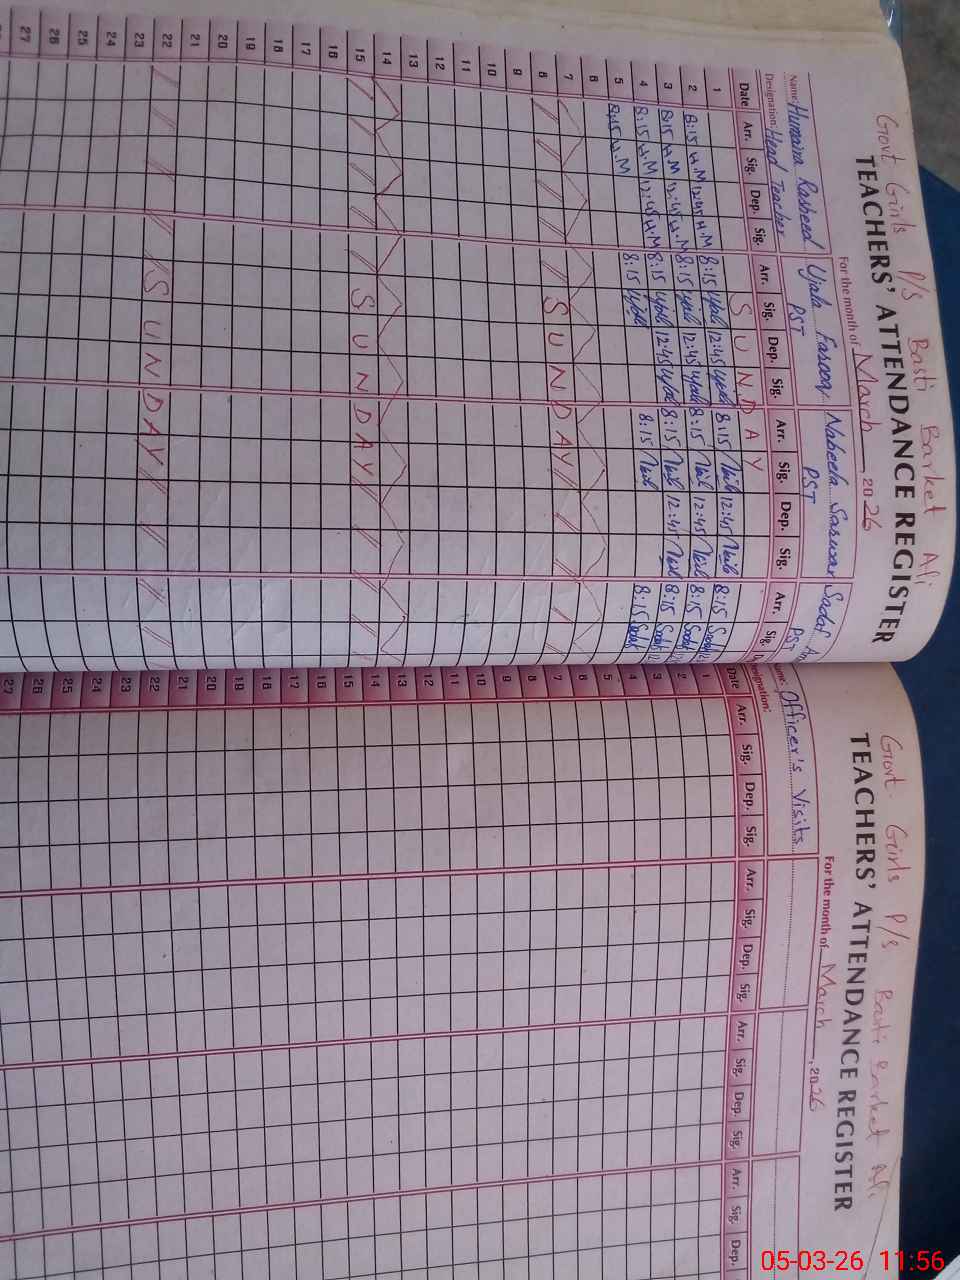 Govt Girls P/s Basti Barket Ali
TEACHERS' ATTENDANCE REGISTER
For the month of March, 2026
Name: Humaira Rasheed Ujala Farooq Nabeela Sarwar Sadaf
Designation: Head Teacher PST PST PST
Date Arr. Sig. Dep. Sig. Arr. Sig. Dep. Sig. Arr. Sig. Dep. Sig. Arr. Sig.
1 SUNDAY
2 8:15 H.M 12:45 H.M 8:15 Ujala 12:45 Ujala 8:15 12:45 8:15 Sadaf
3 8:15 H.M 12:45 H.M 8:15 Ujala 12:45 Ujala 8:15 12:45 8:15 Sadaf
4 8:15 H.M 12:45 H.M 8:15 Ujala 12:45 Ujala 8:15 12:45 8:15 Sadaf
5 8:15 H.M 8:15 Ujala 8:15 8:15 Sadaf
6
7
8 SUNDAY
9
10
11
12
13
14
15 SUNDAY
16
17
18
19
20
21
22 SUNDAY
23
24
25
26
27
Govt. Girls P/s Basti Barket Ali
TEACHERS' ATTENDANCE REGISTER
For the month of March, 2026
Name: Officer's Visits
Designation:
Date Arr. Sig. Dep. Sig. Arr. Sig. Dep. Sig. Arr. Sig. Dep. Sig. Arr. Sig. Dep.
1
2
3
4
5
6
7
8
9
10
11
12
13
14
15
16
17
18
19
20
21
22
23
24
25
26
27
05-03-26 11:56